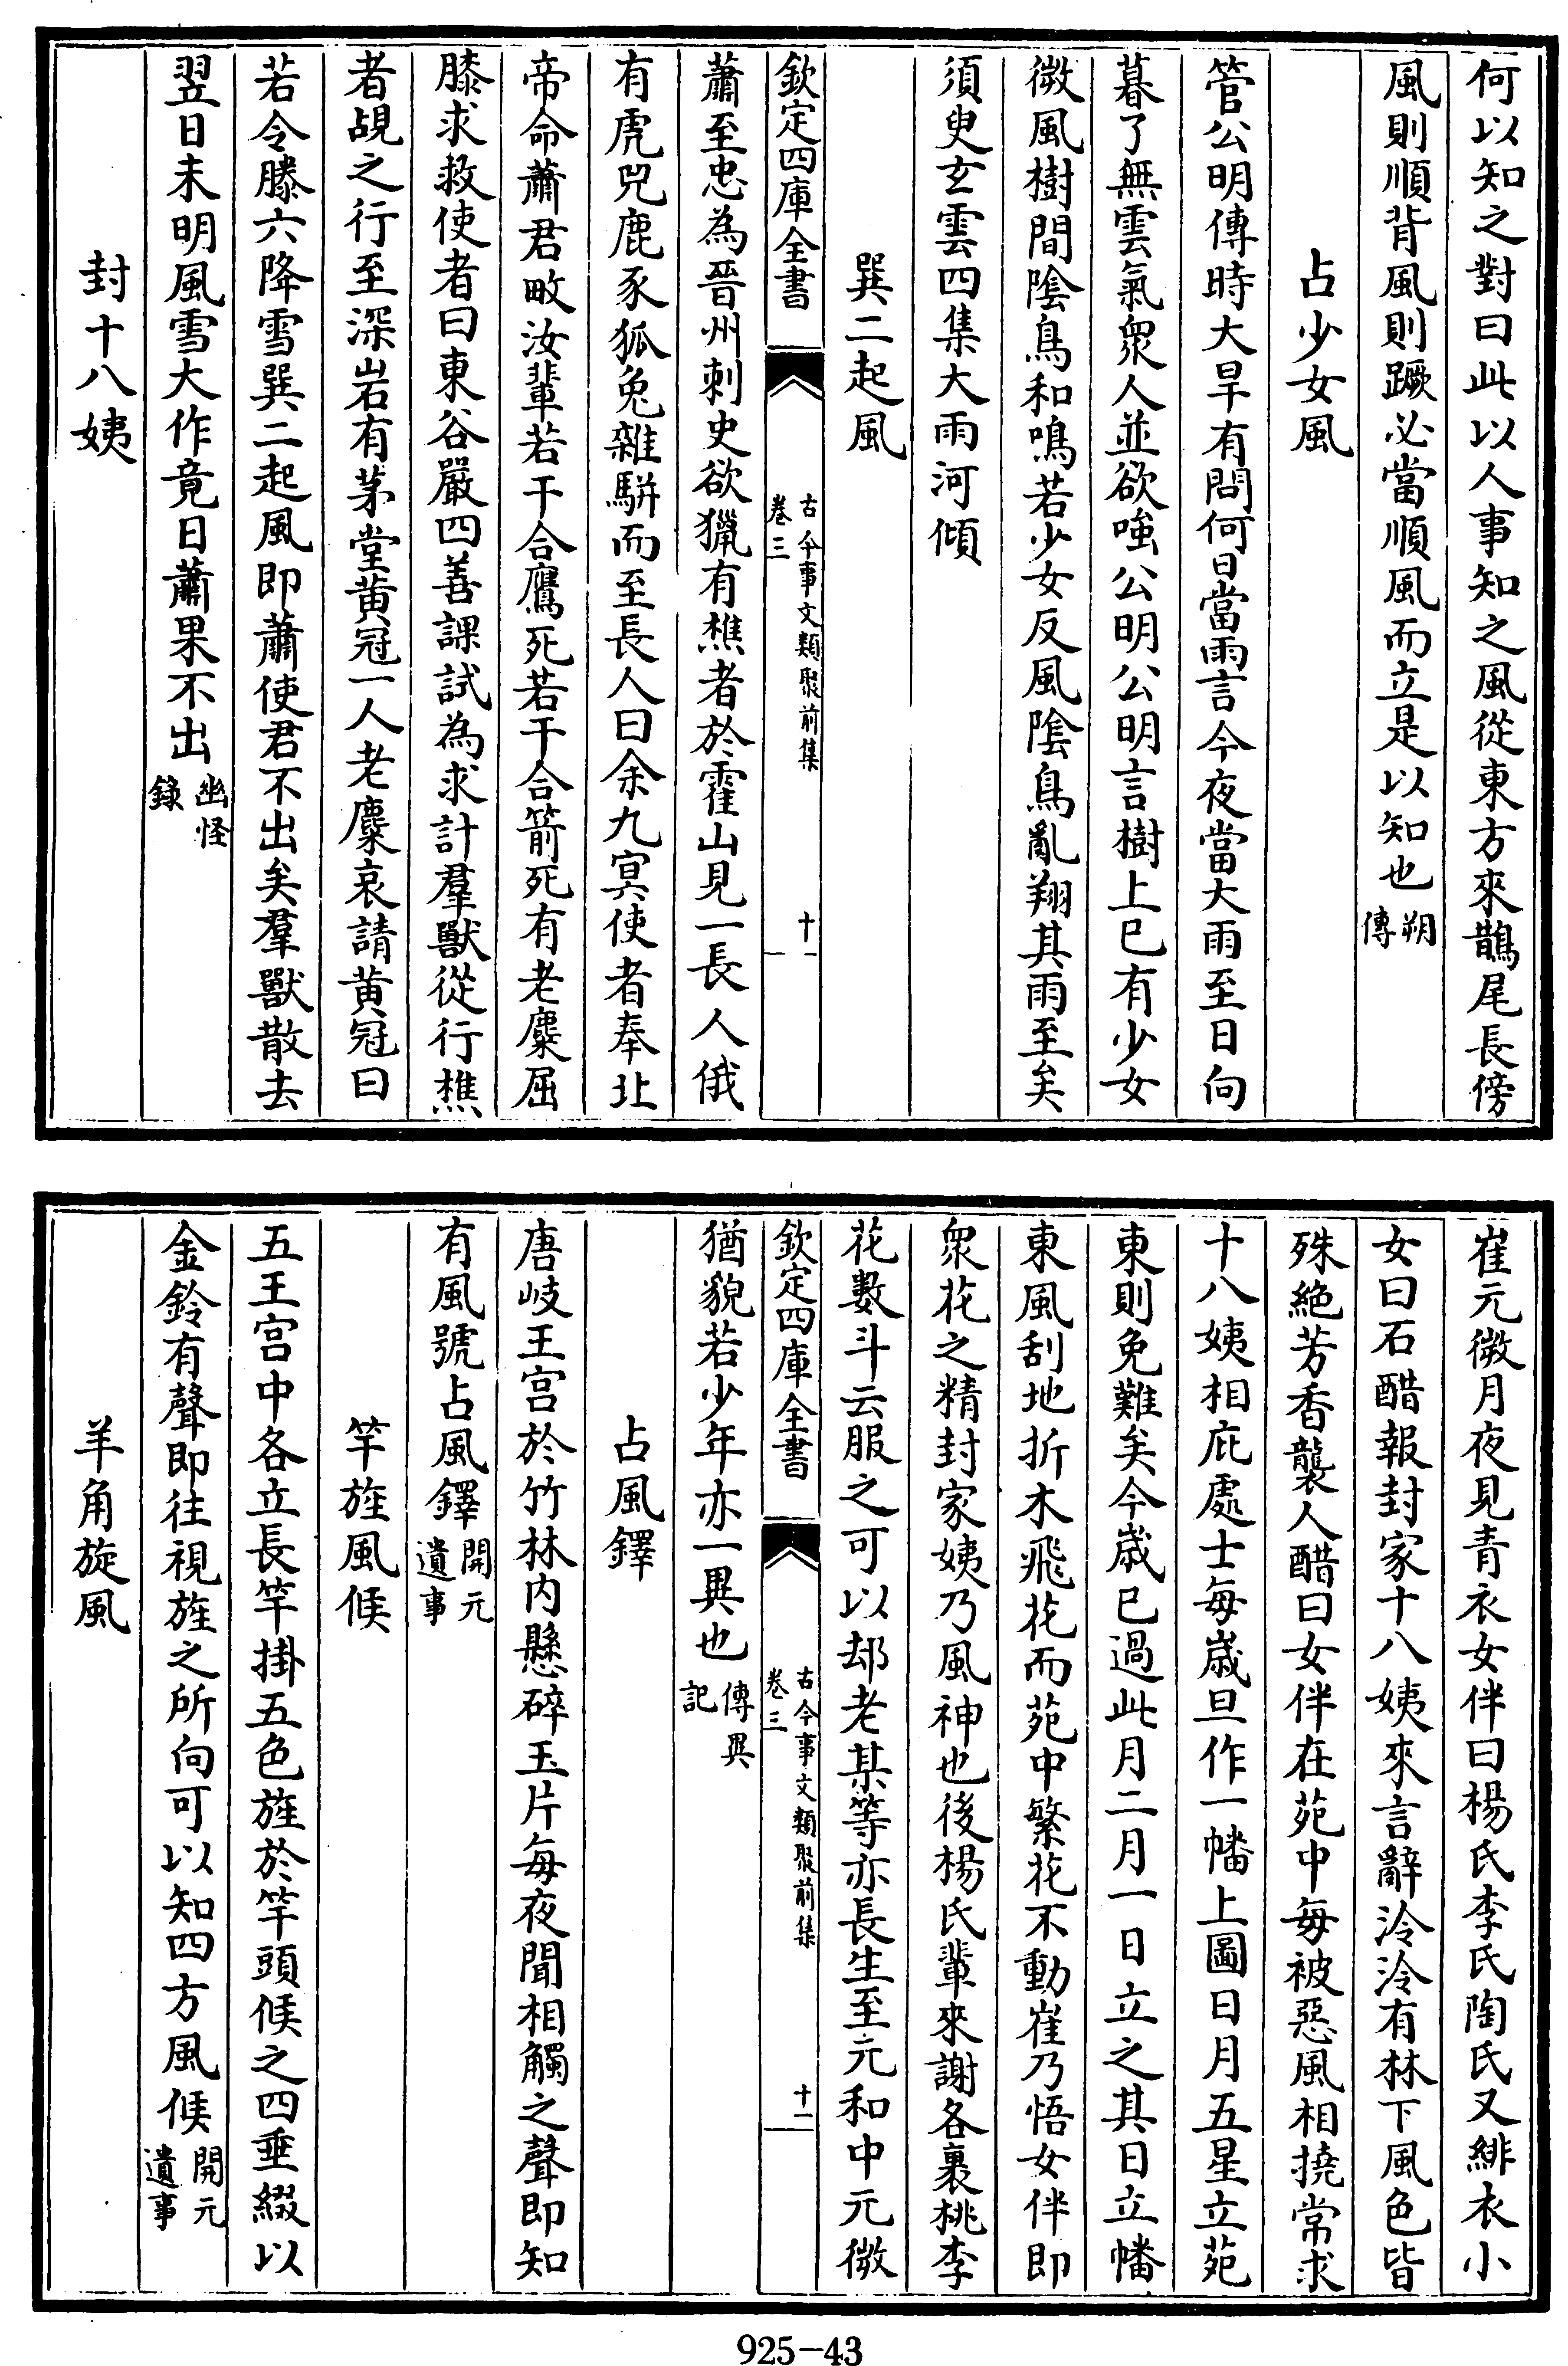 何以知之對曰此以人事知之風從東方來鵲尾長傍
風則順背風則蹶必當順風而立是以知也朔傳
占少女風
管公明傳時大旱有問何日當雨言今夜當大雨至日向
暮了無雲氣眾人並欲嗤公明公明言樹上已有少女
微風樹間陰鳥和鳴若少女反風陰鳥亂翔其雨至矣
須臾玄雲四集大雨河傾
巽二起風
欽定四庫全書 古今事文類聚前集 卷三 十一
蕭至忠為晉州刺史欲獵有樵者於霍山見一長人俄
有虎兕鹿豕狐兔雜駢而至長人曰余九冥使者奉北
帝命蕭君畋汝輩若干合鷹死若干合箭死有老麋屈
膝求救使者曰東谷嚴四善課試為求計羣獸從行樵
者覘之行至深岩有茅堂黃冠一人老麋哀請黃冠曰
若令滕六降雪巽二起風即蕭使君不出矣羣獸散去
翌日未明風雪大作竟日蕭果不出幽怪錄
封十八姨
崔元微月夜見青衣女伴曰楊氏李氏陶氏又緋衣小
女曰石醋報封家十八姨來言辭泠泠有林下風色皆
殊絕芳香襲人醋曰女伴在苑中每被惡風相撓常求
十八姨相庇處士每嵗旦作一幡上圖日月五星立苑
東則免難矣今嵗已過此月二月一日立之其日立幡
東風刮地折木飛花而苑中繁花不動崔乃悟女伴即
眾花之精封家姨乃風神也後楊氏輩來謝各裹桃李
花數斗云服之可以却老某等亦長生至元和中元微
欽定四庫全書 古今事文類聚前集 卷三 十一
猶貌若少年亦一異也傳異記
占風鐸
唐岐王宮於竹林内懸碎玉片每夜聞相觸之聲即知
有風號占風鐸開元遺事
竿旌風候
五王宮中各立長竿掛五色旌於竿頭候之四垂綴以
金鈴有聲即往視旌之所向可以知四方風候開元遺事
羊角旋風
925-43